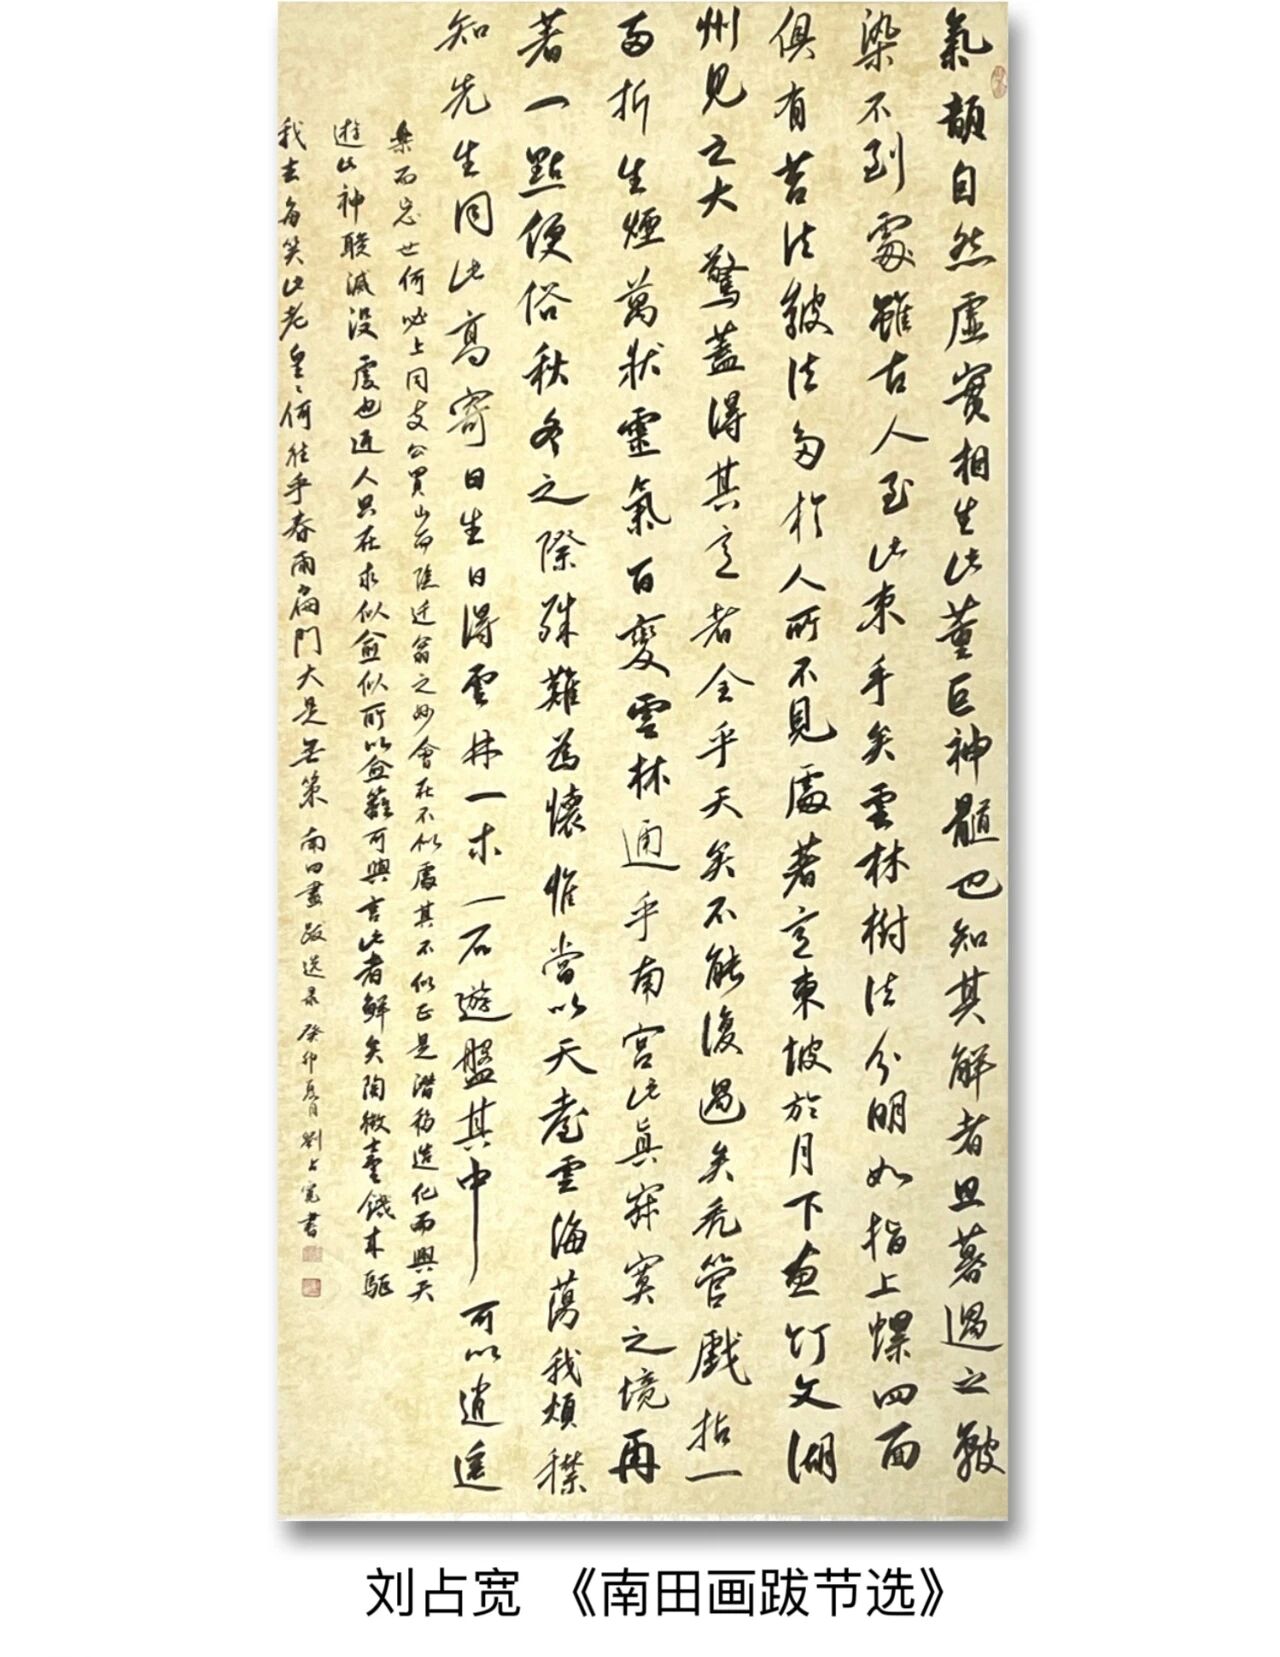 氣韻自然虛實相生此董巨神髓也知其解者旦暮遇之皴
染不到處雖古人至此束手矣雲林樹法分明如指上螺四面
俱有苔法皴法多於人所不見處著意東坡於月下畫竹文湖
州見之大驚蓋得其意者全乎天矣不能復過矣禿管戲拈一
両折生煙萬狀靈氣百變雲林通乎南宮此真寂寞之境再
著一點便俗秋冬之際殊難為懷惟當以天臺雲海蕩我煩襟
知先生同此高寄日生日得雲林一木一石遊盤其中可以逍遥
樂而忘世何必上同支公買山而隱迂翁之妙會在不似處其不似正是潛移造化而與天
遊此神駿滅沒處也近人只在求似愈似所以愈離可與言此者鮮矣陶徵士云饑來驅
我去每笑此老皇皇何往乎春雨扃門大是無策 南田畫跋選录 癸卯夏月劉占寬書
刘占宽 《南田画跋节选》